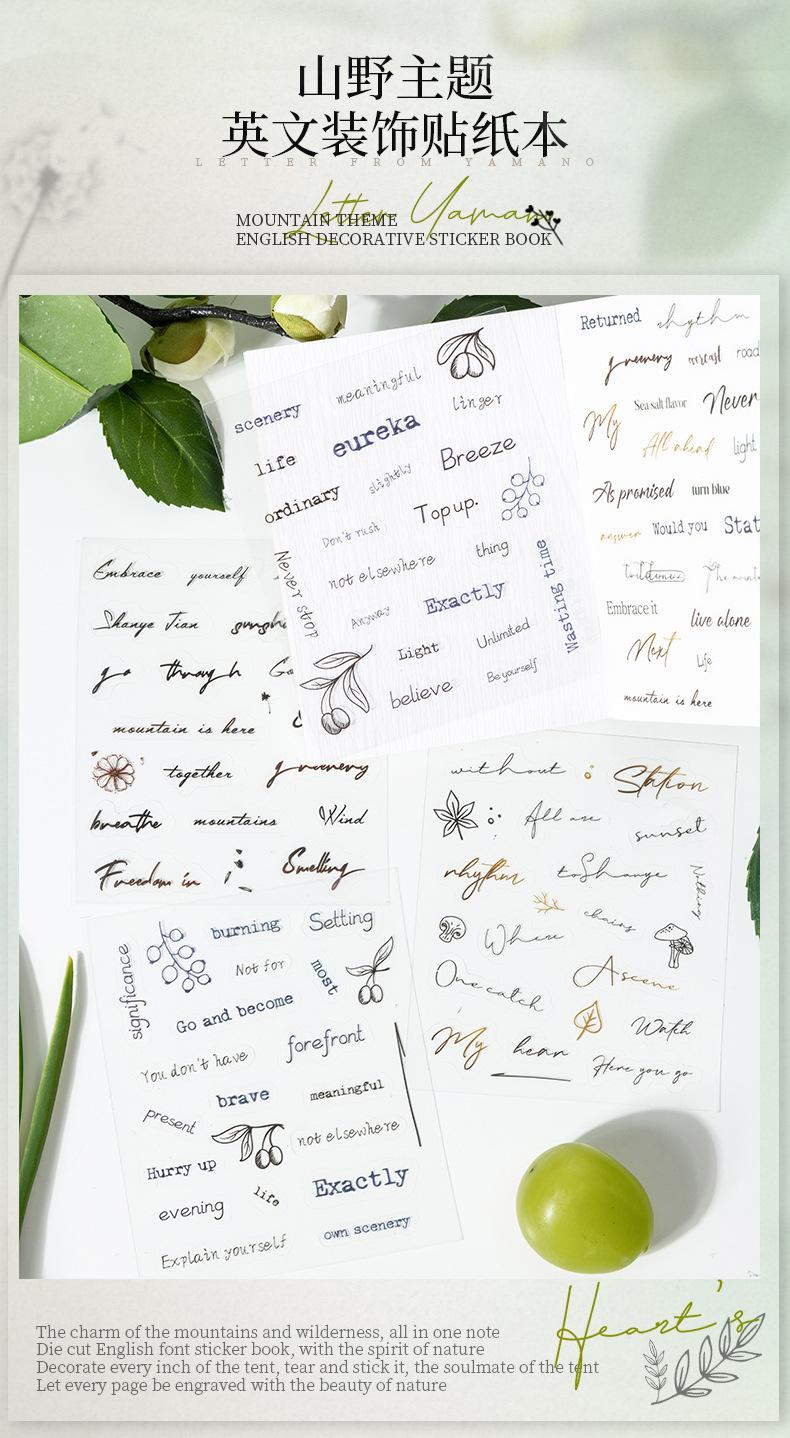 山野主题
英文装饰贴纸本
LETTER FROM YAMANO
Letter Yaman
MOUNTAIN THEME
ENGLISH DECORATIVE STICKER BOOK
scenery
meaningful
life
eureka
linger
ordinary
slightly
Breeze
Don't rush
Top up.
Never stop
not elsewhere
thing
Anyway
Exactly
Wasting time
Light
Unlimited
believe
Be yourself
Returned rhythm
greenery overcast road
My
Sea salt flavor Never
All ahead light
As promised turn blue
answer Would you Stat
Embrace it
live alone
Next
Life
mountain is here
Embrace yourself
Shanye Tian
go through Go
mountain is here
together greenery
breathe mountains Wind
Freedom in Smelling
without Station
All are sunset
rhythm toShange
Nothing
chains
Where
One catch Ascene
My hear Watch
Here you go
significance
burning Setting
Not for most
Go and become
You don't have forefront
brave meaningful
present
not elsewhere
Hurry up
life
Exactly
evening
own scenery
Explain yourself
Heart's
The charm of the mountains and wilderness, all in one note
Die cut English font sticker book, with the spirit of nature
Decorate every inch of the tent, tear and stick it, the soulmate of the tent
Let every page be engraved with the beauty of nature